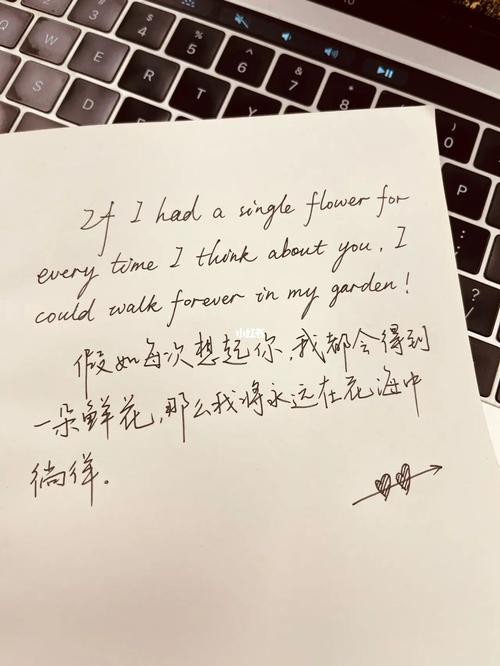 If I had a single flower for
every time I think about you, I
could walk forever in my garden!
小红书
假如每次想起你,我都会得到
一朵鲜花,那么我将永远在花海中
徜徉。
4
5
6
7
8
W
E
R
T
S
D
0
P